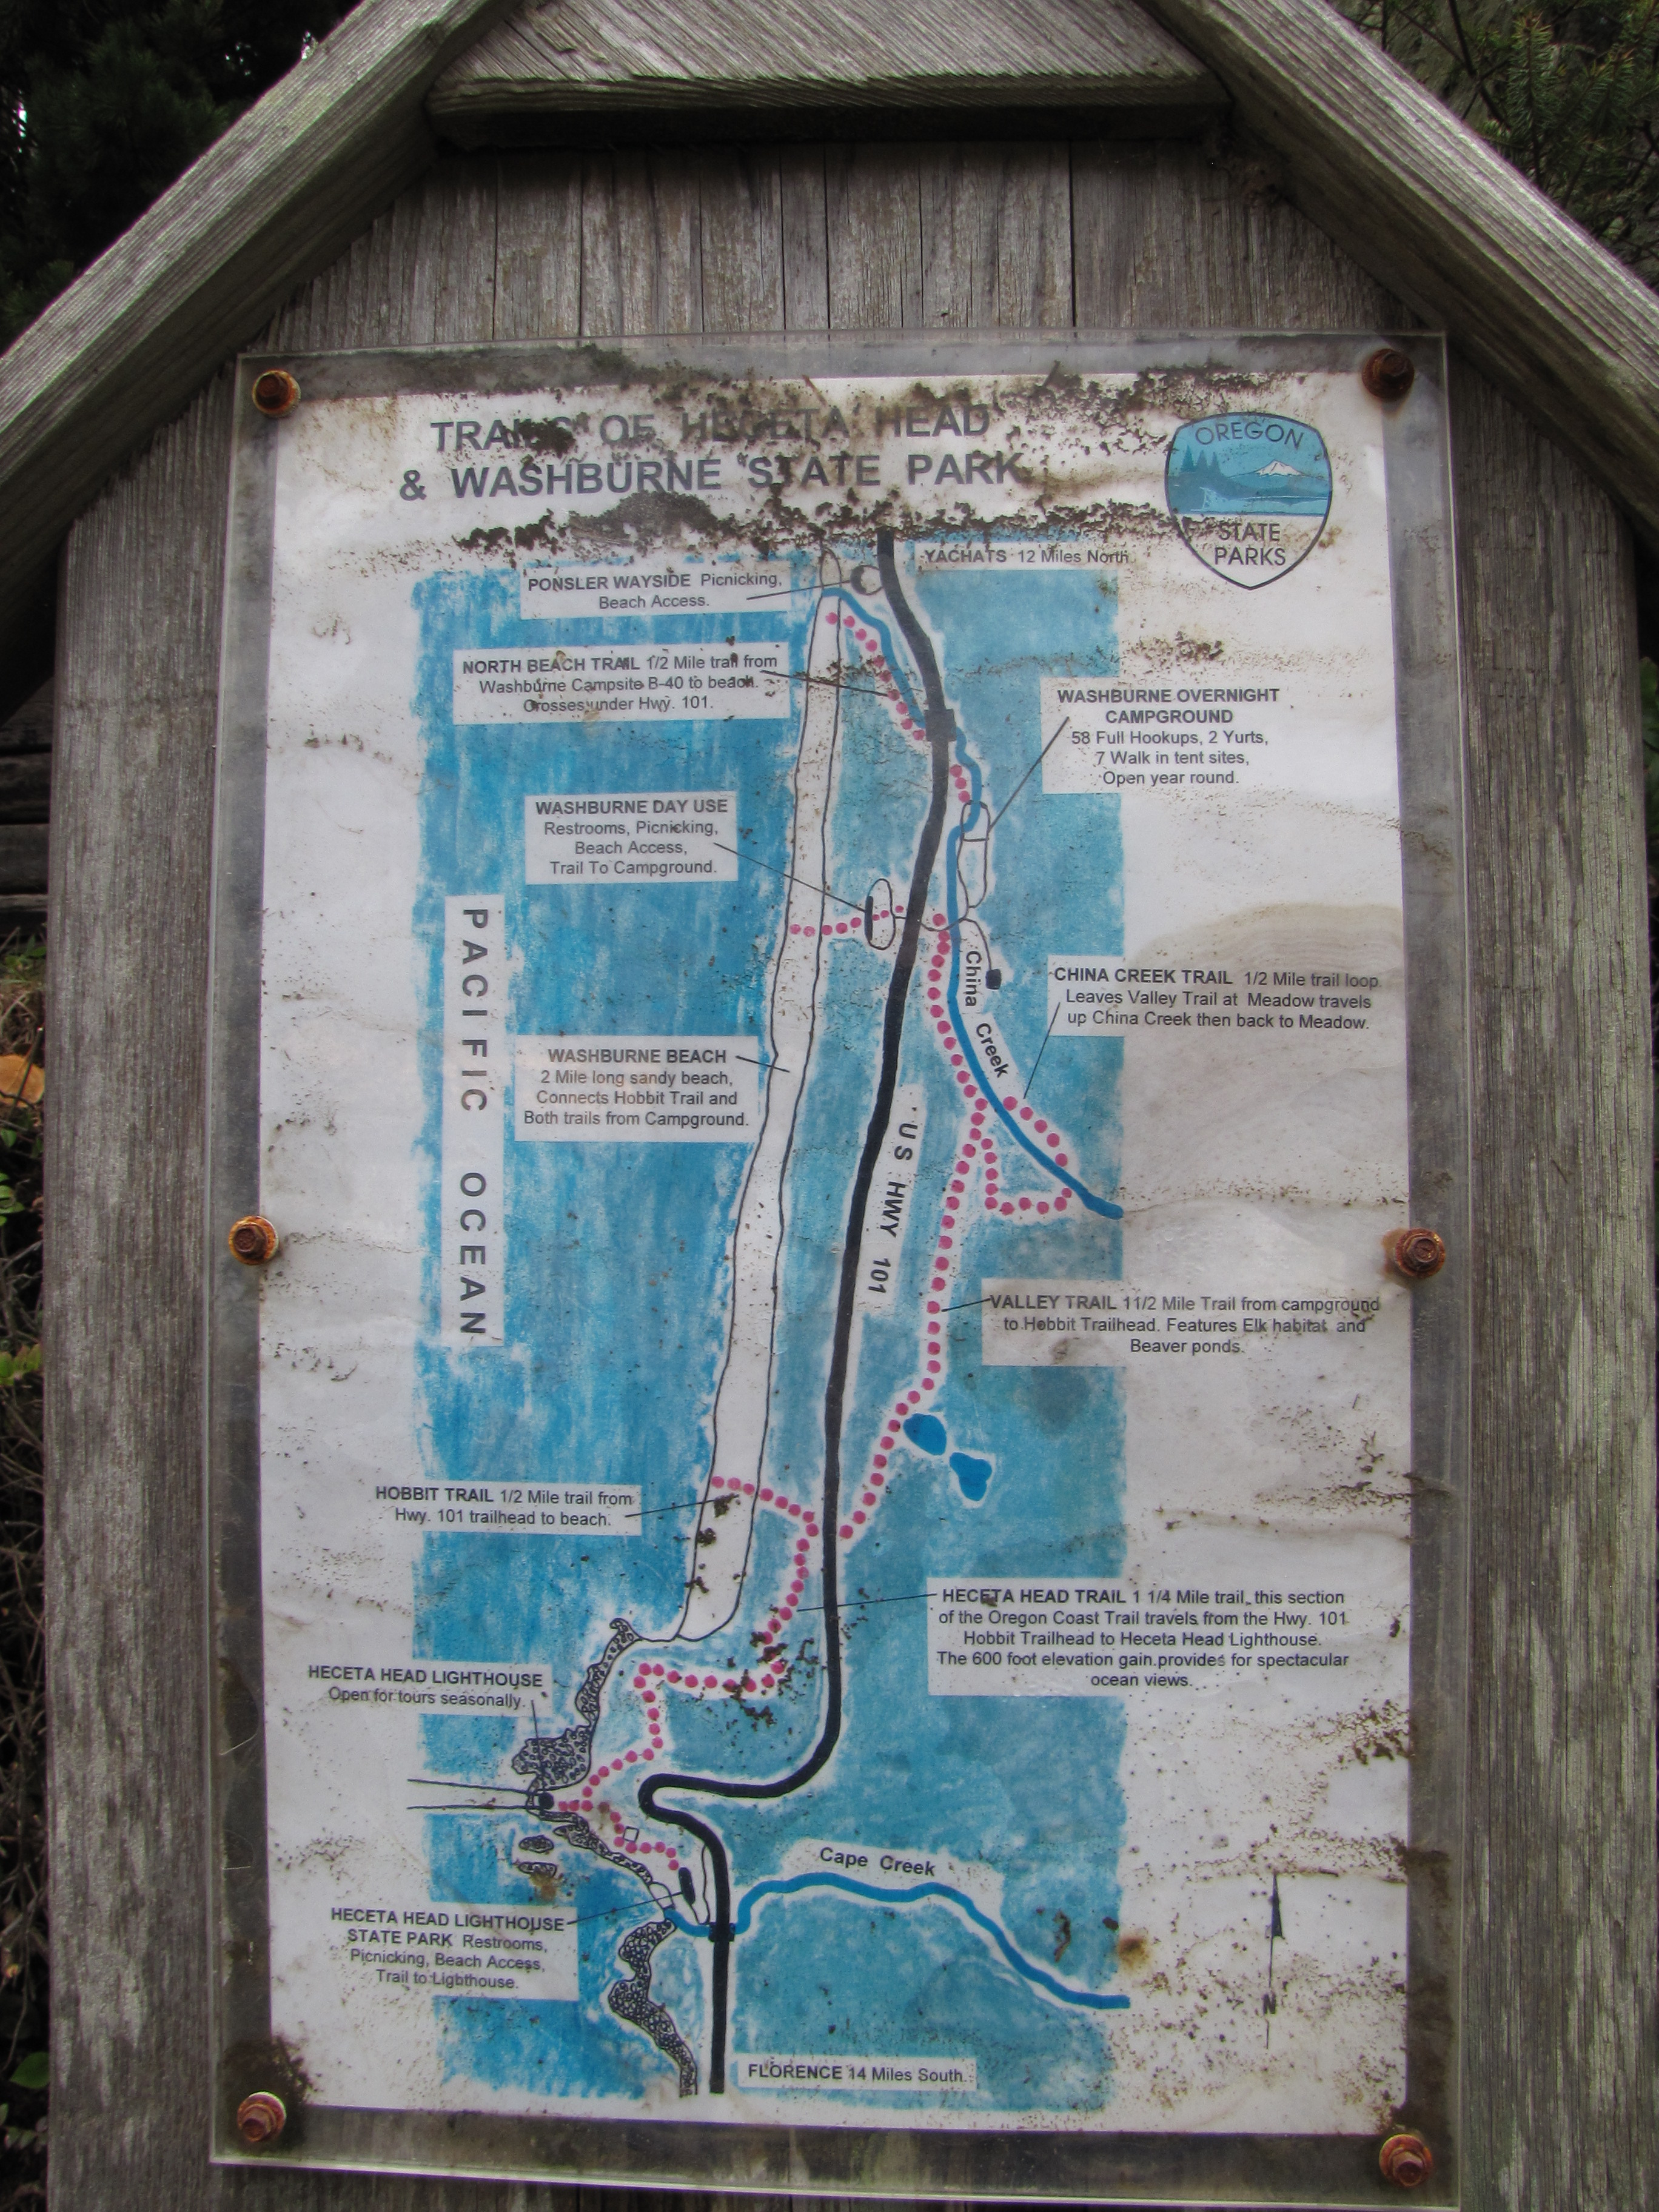 TRAILS OF HECETA HEAD
& WASHBURNE STATE PARK
OREGON
STATE
PARKS
YACHATS 12 Miles North
PONSLER WAYSIDE Picnicking,
Beach Access.
NORTH BEACH TRAIL 1/2 Mile trail from
Washburne Campsite B-40 to beach.
Crosses under Hwy. 101.
WASHBURNE OVERNIGHT
CAMPGROUND
58 Full Hookups, 2 Yurts,
7 Walk in tent sites,
Open year round.
WASHBURNE DAY USE
Restrooms, Picnicking,
Beach Access,
Trail To Campground.
PACIFIC OCEAN
China Creek
CHINA CREEK TRAIL 1/2 Mile trail loop
Leaves Valley Trail at Meadow travels
up China Creek then back to Meadow.
WASHBURNE BEACH
2 Mile long sandy beach,
Connects Hobbit Trail and
Both trails from Campground.
US HWY 101
VALLEY TRAIL 11/2 Mile Trail from campground
to Hobbit Trailhead. Features Elk habitat and
Beaver ponds.
HOBBIT TRAIL 1/2 Mile trail from
Hwy. 101 trailhead to beach.
HECETA HEAD TRAIL 1 1/4 Mile trail, this section
of the Oregon Coast Trail travels from the Hwy. 101
Hobbit Trailhead to Heceta Head Lighthouse.
The 600 foot elevation gain provides for spectacular
ocean views.
HECETA HEAD LIGHTHOUSE
Open for tours seasonally.
Cape Creek
HECETA HEAD LIGHTHOUSE
STATE PARK Restrooms,
Picnicking, Beach Access,
Trail to Lighthouse.
N
FLORENCE 14 Miles South.